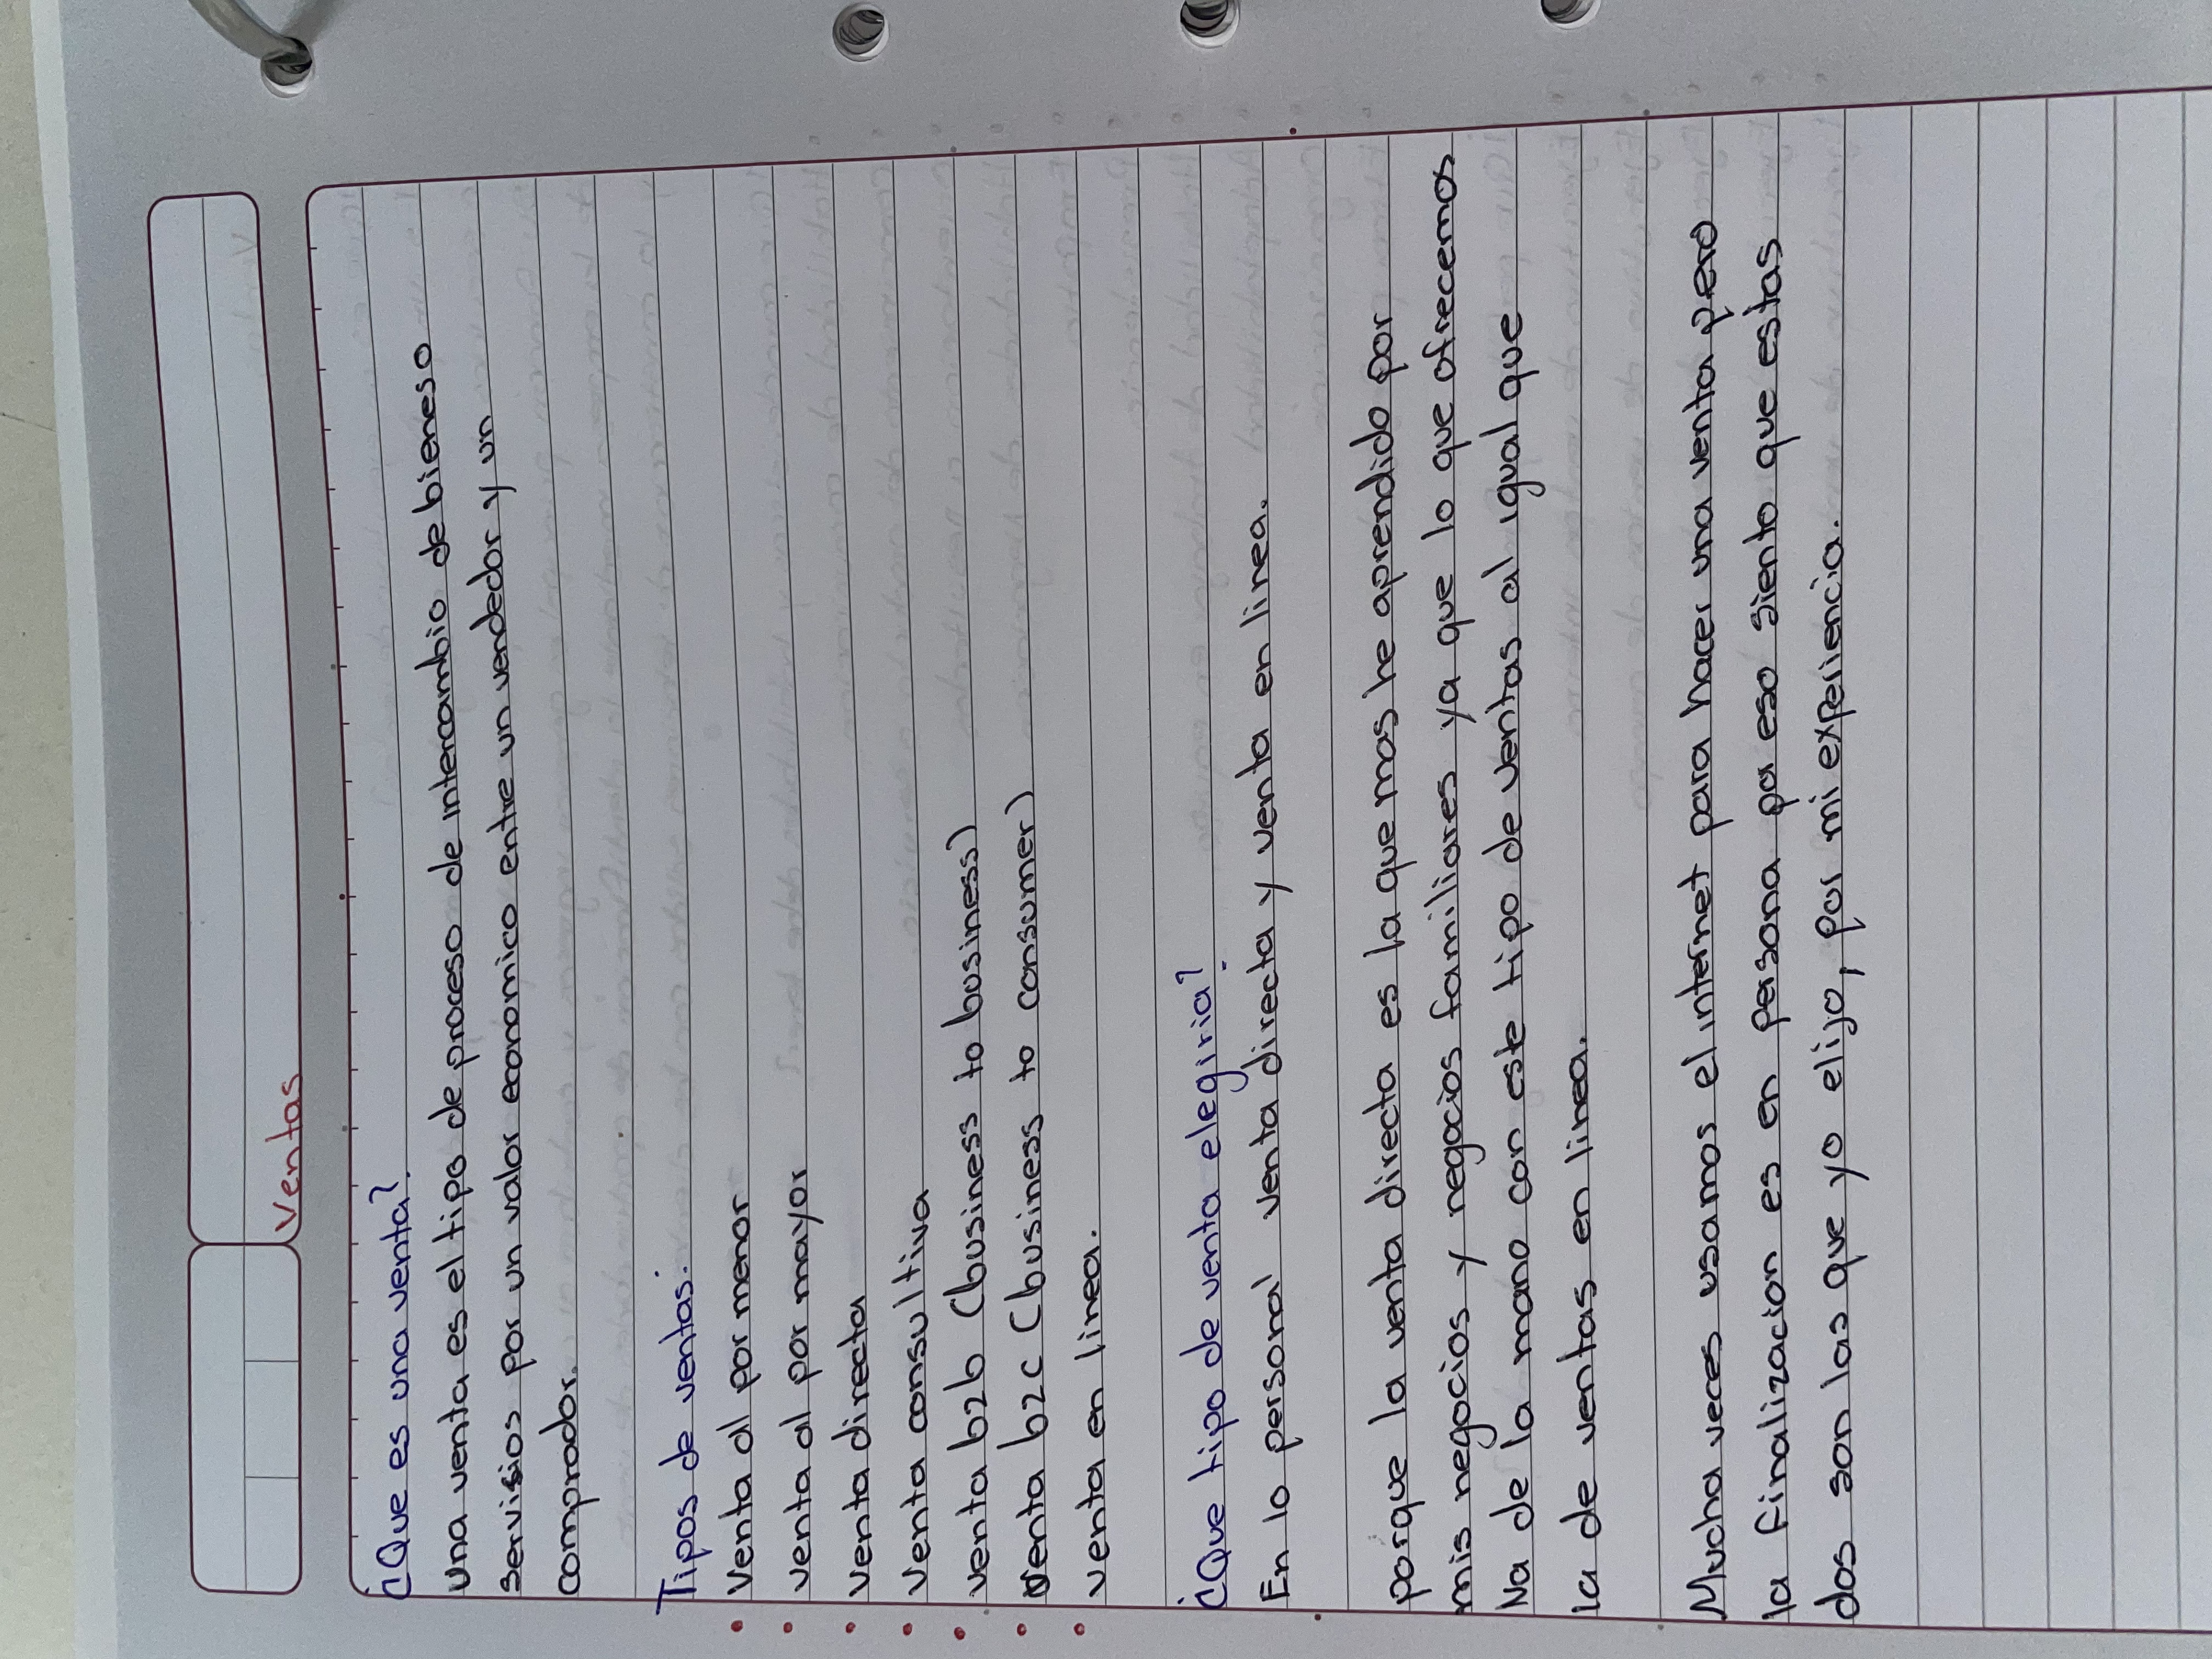 Ventas
¿Que es una venta?
Una venta es el tipo de proceso de intercambio de bieneso
servisios por un valor economico entre un vendedor y un
comprador.
Tipos de ventas:
• Venta al por menor
• venta al por mayor
• venta directa
• Venta consultiva
• venta b2b (business to business)
• Venta b2c (business to consumer)
• venta en linea.
¿Que tipo de venta elegiria?
En lo personal venta directa y venta en linea.
porque la venta directa es la que mas he aprendido por
mis negocios y negocios familiares ya que lo que ofrecemos
Va de la mano con este tipo de ventas al igual que
la de ventas en linea.
Mucha veces usamos el internet para hacer una venta pero
la finalizacion es en persona por eso siento que estas
dos son las que yo elijo, por mi experiencia.